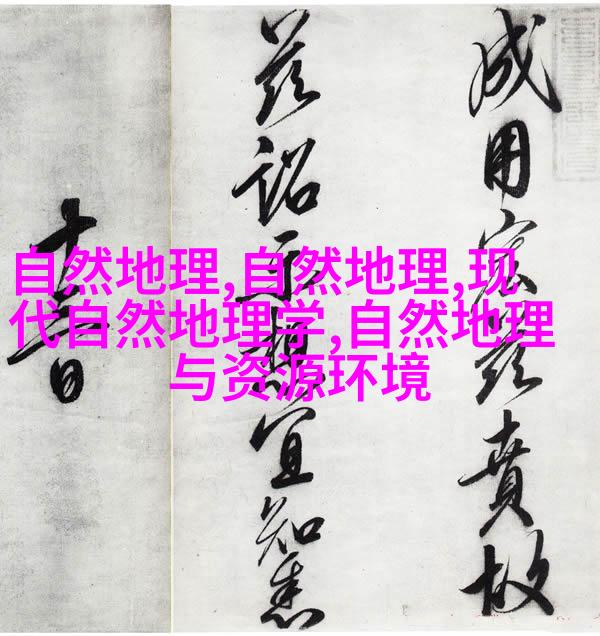 自然地理,自然地理,现
代自然地理学,自然地理
与资源环境
成用宏茲賁故
茲詔示想宜知悉
十日